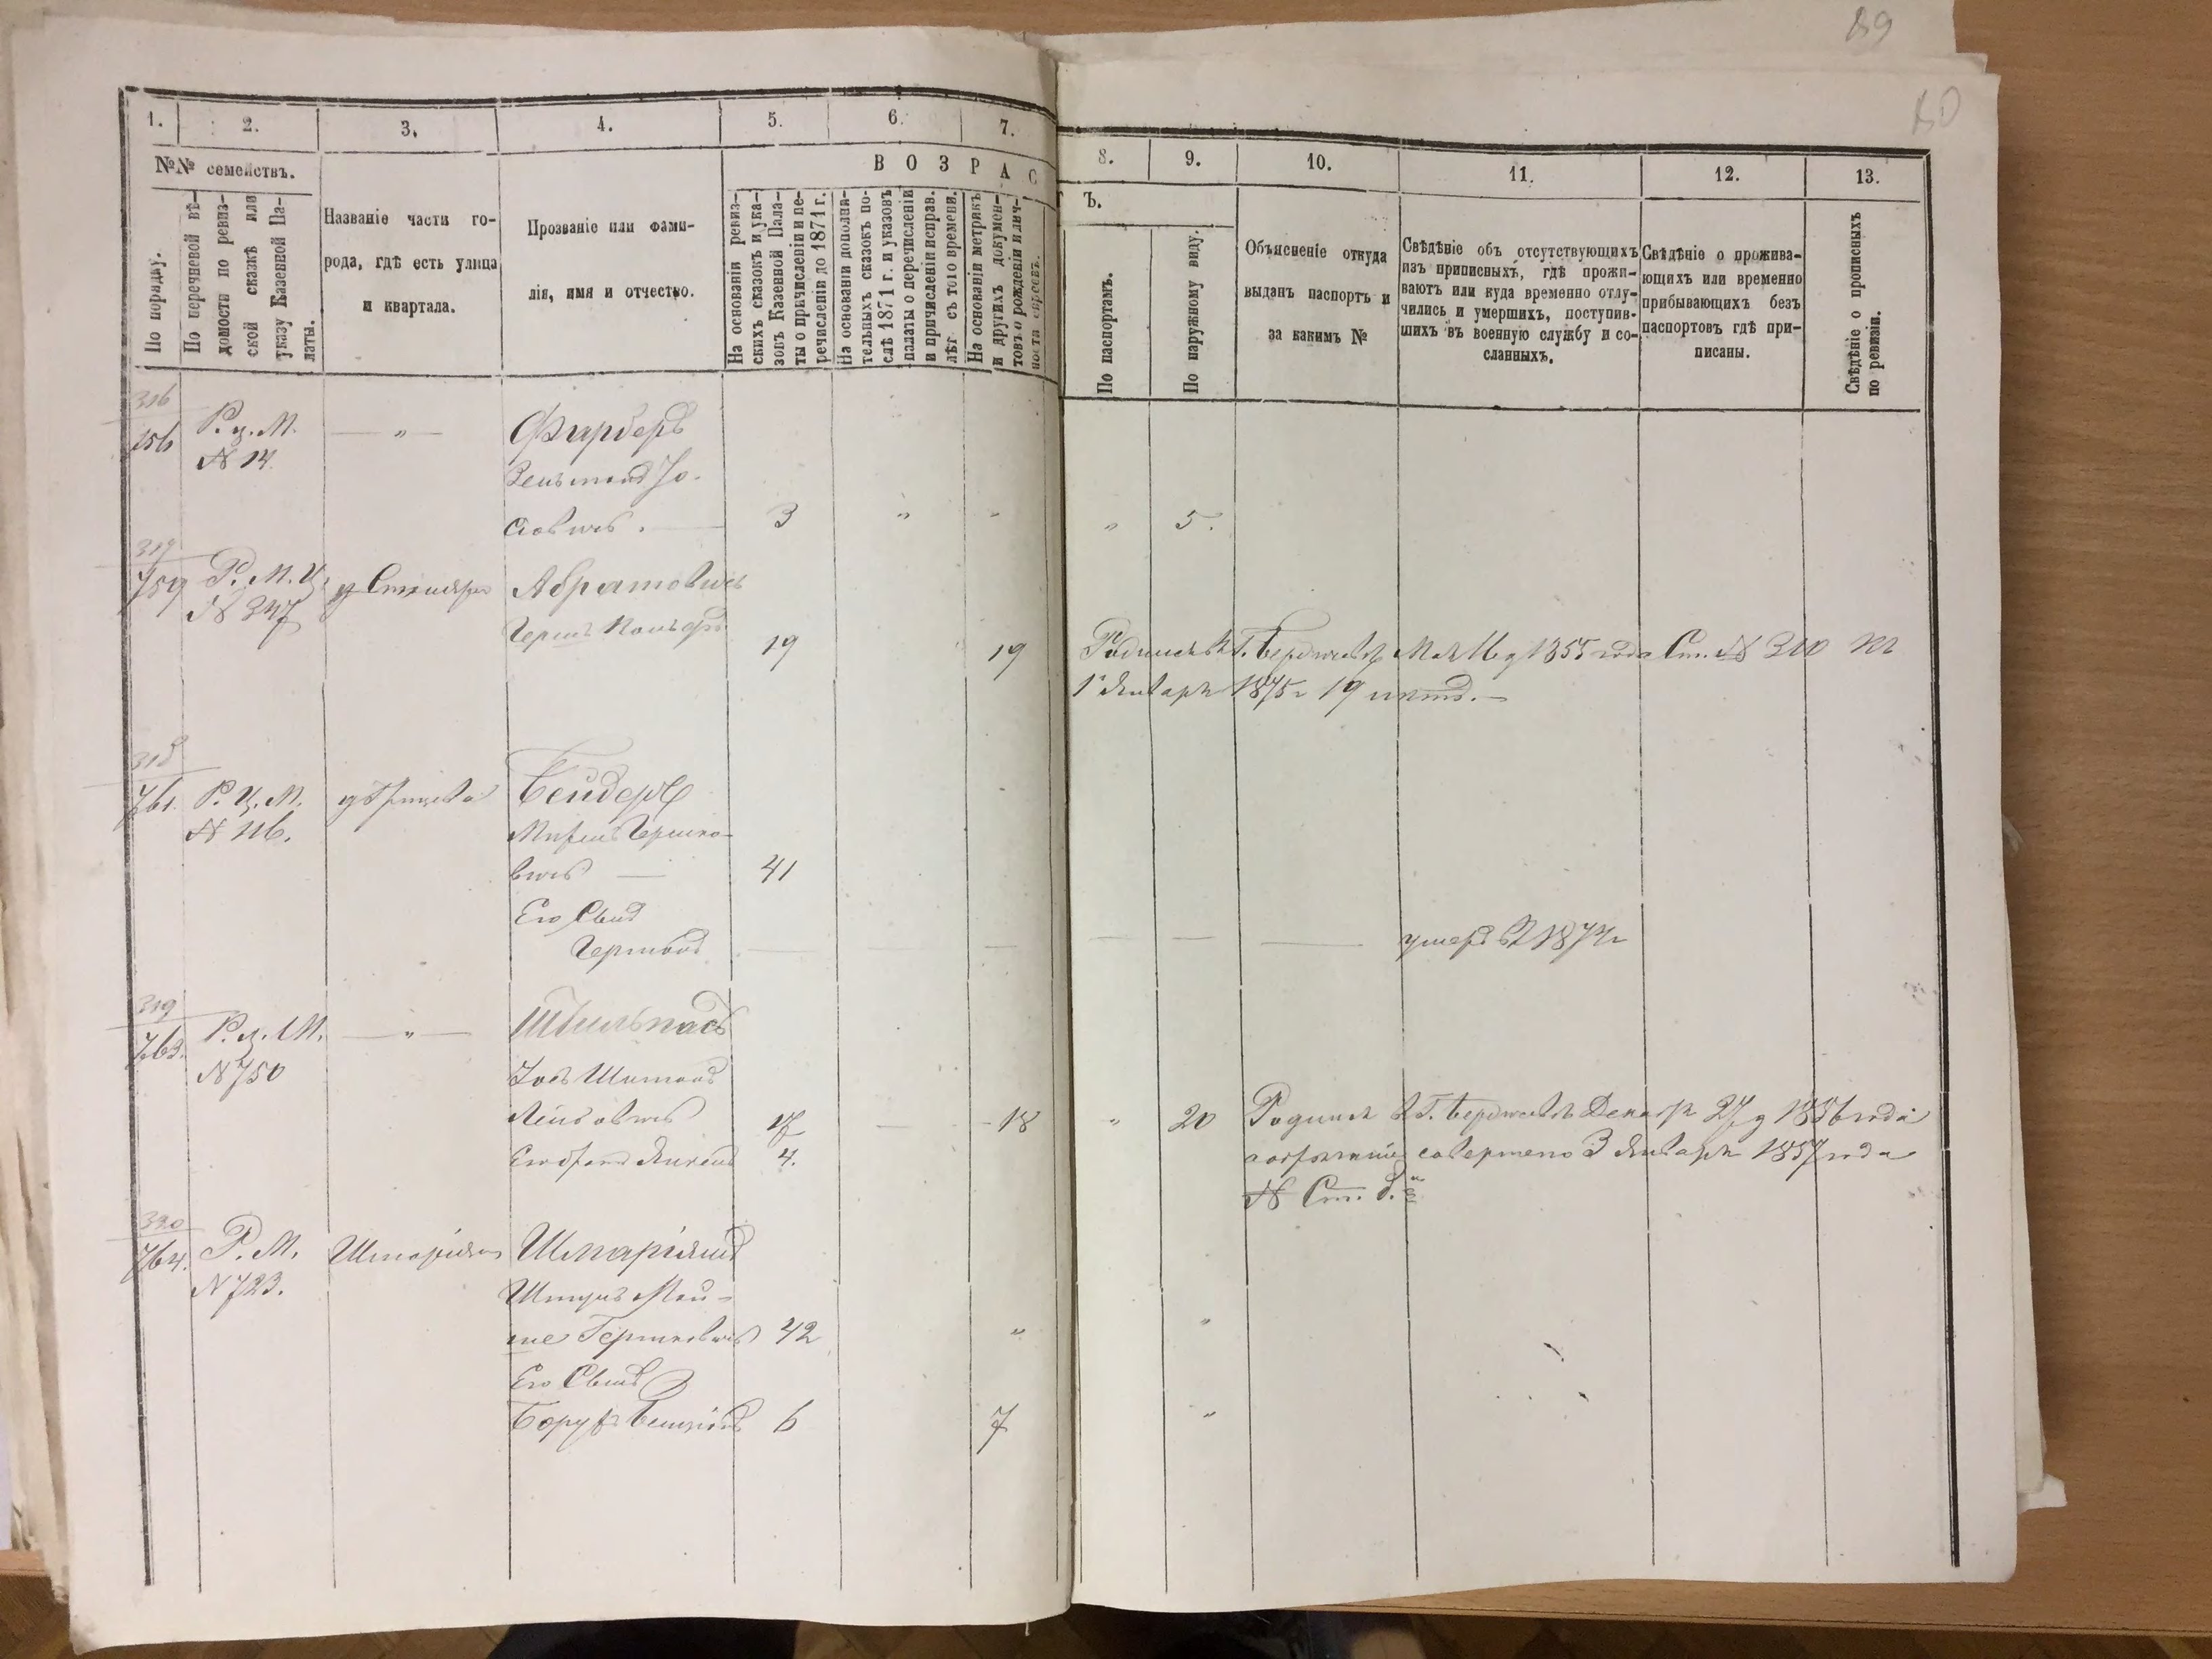 89
80
1.
2.
3.
4.
5.
6.
7.
8.
9.
10.
11.
12.
13.
№№ семействъ.
По порядку.
По перечневой вѣ-
домости по ревиз-
ской сказкѣ или
указу Казенной Па-
латы.
Названіе части го-
рода, гдѣ есть улица
и квартала.
Прозваніе или фами-
лія, имя и отчество.
ВОЗРАС
ТЪ.
На основаніи ревиз-
скихъ сказокъ и ука-
зовъ Казенной Пала-
ты о причисленіи и пе-
речисленіи до 1871 г.
На основаніи дополни-
тельныхъ сказокъ по-
слѣ 1871 г. и указовъ
палаты о перечисленіи
и причисленіи исправ.
лѣт съ того времени.
На основаніи метрикъ
и другихъ докумен-
товъ о рожденіи и лич-
ности евреевъ.
По паспортамъ.
По наружному виду.
Объясненіе откуда
выданъ паспортъ и
за какимъ №
Свѣдѣніе объ отсутствующихъ
изъ приписныхъ, гдѣ прожи-
ваютъ или куда временно отлу-
чились и умершихъ, поступив-
шихъ въ военную службу и со-
сланныхъ.
Свѣдѣніе о прожива-
ющихъ или временно
прибывающихъ безъ
паспортовъ гдѣ при-
писаны.
Свѣдѣніе о прописныхъ
по ревизіи.
316
756 Р. ц. М. — " — Фарберъ
№ 14.
Зельманъ Іо-
сіовичъ. — 3 " " " 5.
317
759 Р. М. Ц. Абрамовичъ
№ 347
Гершъ 19 19 Родился въ Г. Бердичевѣ Мая 11 д 1855 года Ст. № 310 къ
1 Января 1875 г 19 лѣтъ. —
318
761. Р. Ц. М. Бендеръ
№ 116.
Гершко-
вичъ — 41
Его Сынъ
— — — — — — умеръ въ 1874 г
319
763. Р. ц. М. — " —
№ 750
Іось Шимонъ
Лейбовичъ 17 — 18 " 20 Родился въ Г. Бердичевѣ Декабря 27 д 1856 года
Его братъ Янкель 4. обрѣзаніе совершено 3 Января 1857 года
№ Ст. 8.
320
764. Р. М.
№ 723.
Шмуль Мой-
ше Гершковичъ 42 " "
Его Сынъ
Борухъ 6 7 "